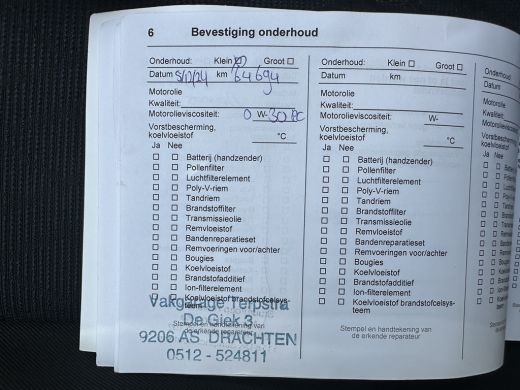 6 Bevestiging onderhoud
Onderhoud: Klein Groot
Datum 5/12/24 km 64694
Motorolie
Kwaliteit:
Motorolieviscositeit: 0 W- 30
Vorstbescherming,
koelvloeistof °C
Ja Nee
Batterij (handzender)
Pollenfilter
Luchtfilterelement
Poly-V-riem
Tandriem
Brandstoffilter
Transmissieolie
Remvloeistof
Bandenreparatieset
Remvoeringen voor/achter
Bougies
Koelvloeistof
Brandstofadditief
Ion-filterelement
Koelvloeistof brandstofcelsys-
teem
Vakgarage Terpstra
De Giek 3
Stempel en handtekening van
de erkende reparateur
9206 AS DRACHTEN
0512 - 524811
Onderhoud: Klein Groot
Datum km
Motorolie
Kwaliteit:
Motorolieviscositeit: W-
Vorstbescherming,
koelvloeistof °C
Ja Nee
Batterij (handzender)
Pollenfilter
Luchtfilterelement
Poly-V-riem
Tandriem
Brandstoffilter
Transmissieolie
Remvloeistof
Bandenreparatieset
Remvoeringen voor/achter
Bougies
Koelvloeistof
Brandstofadditief
Ion-filterelement
Koelvloeistof brandstofcelsys-
teem
Stempel en handtekening van
de erkende reparateur
Datum
Motorolie
Ja Nee